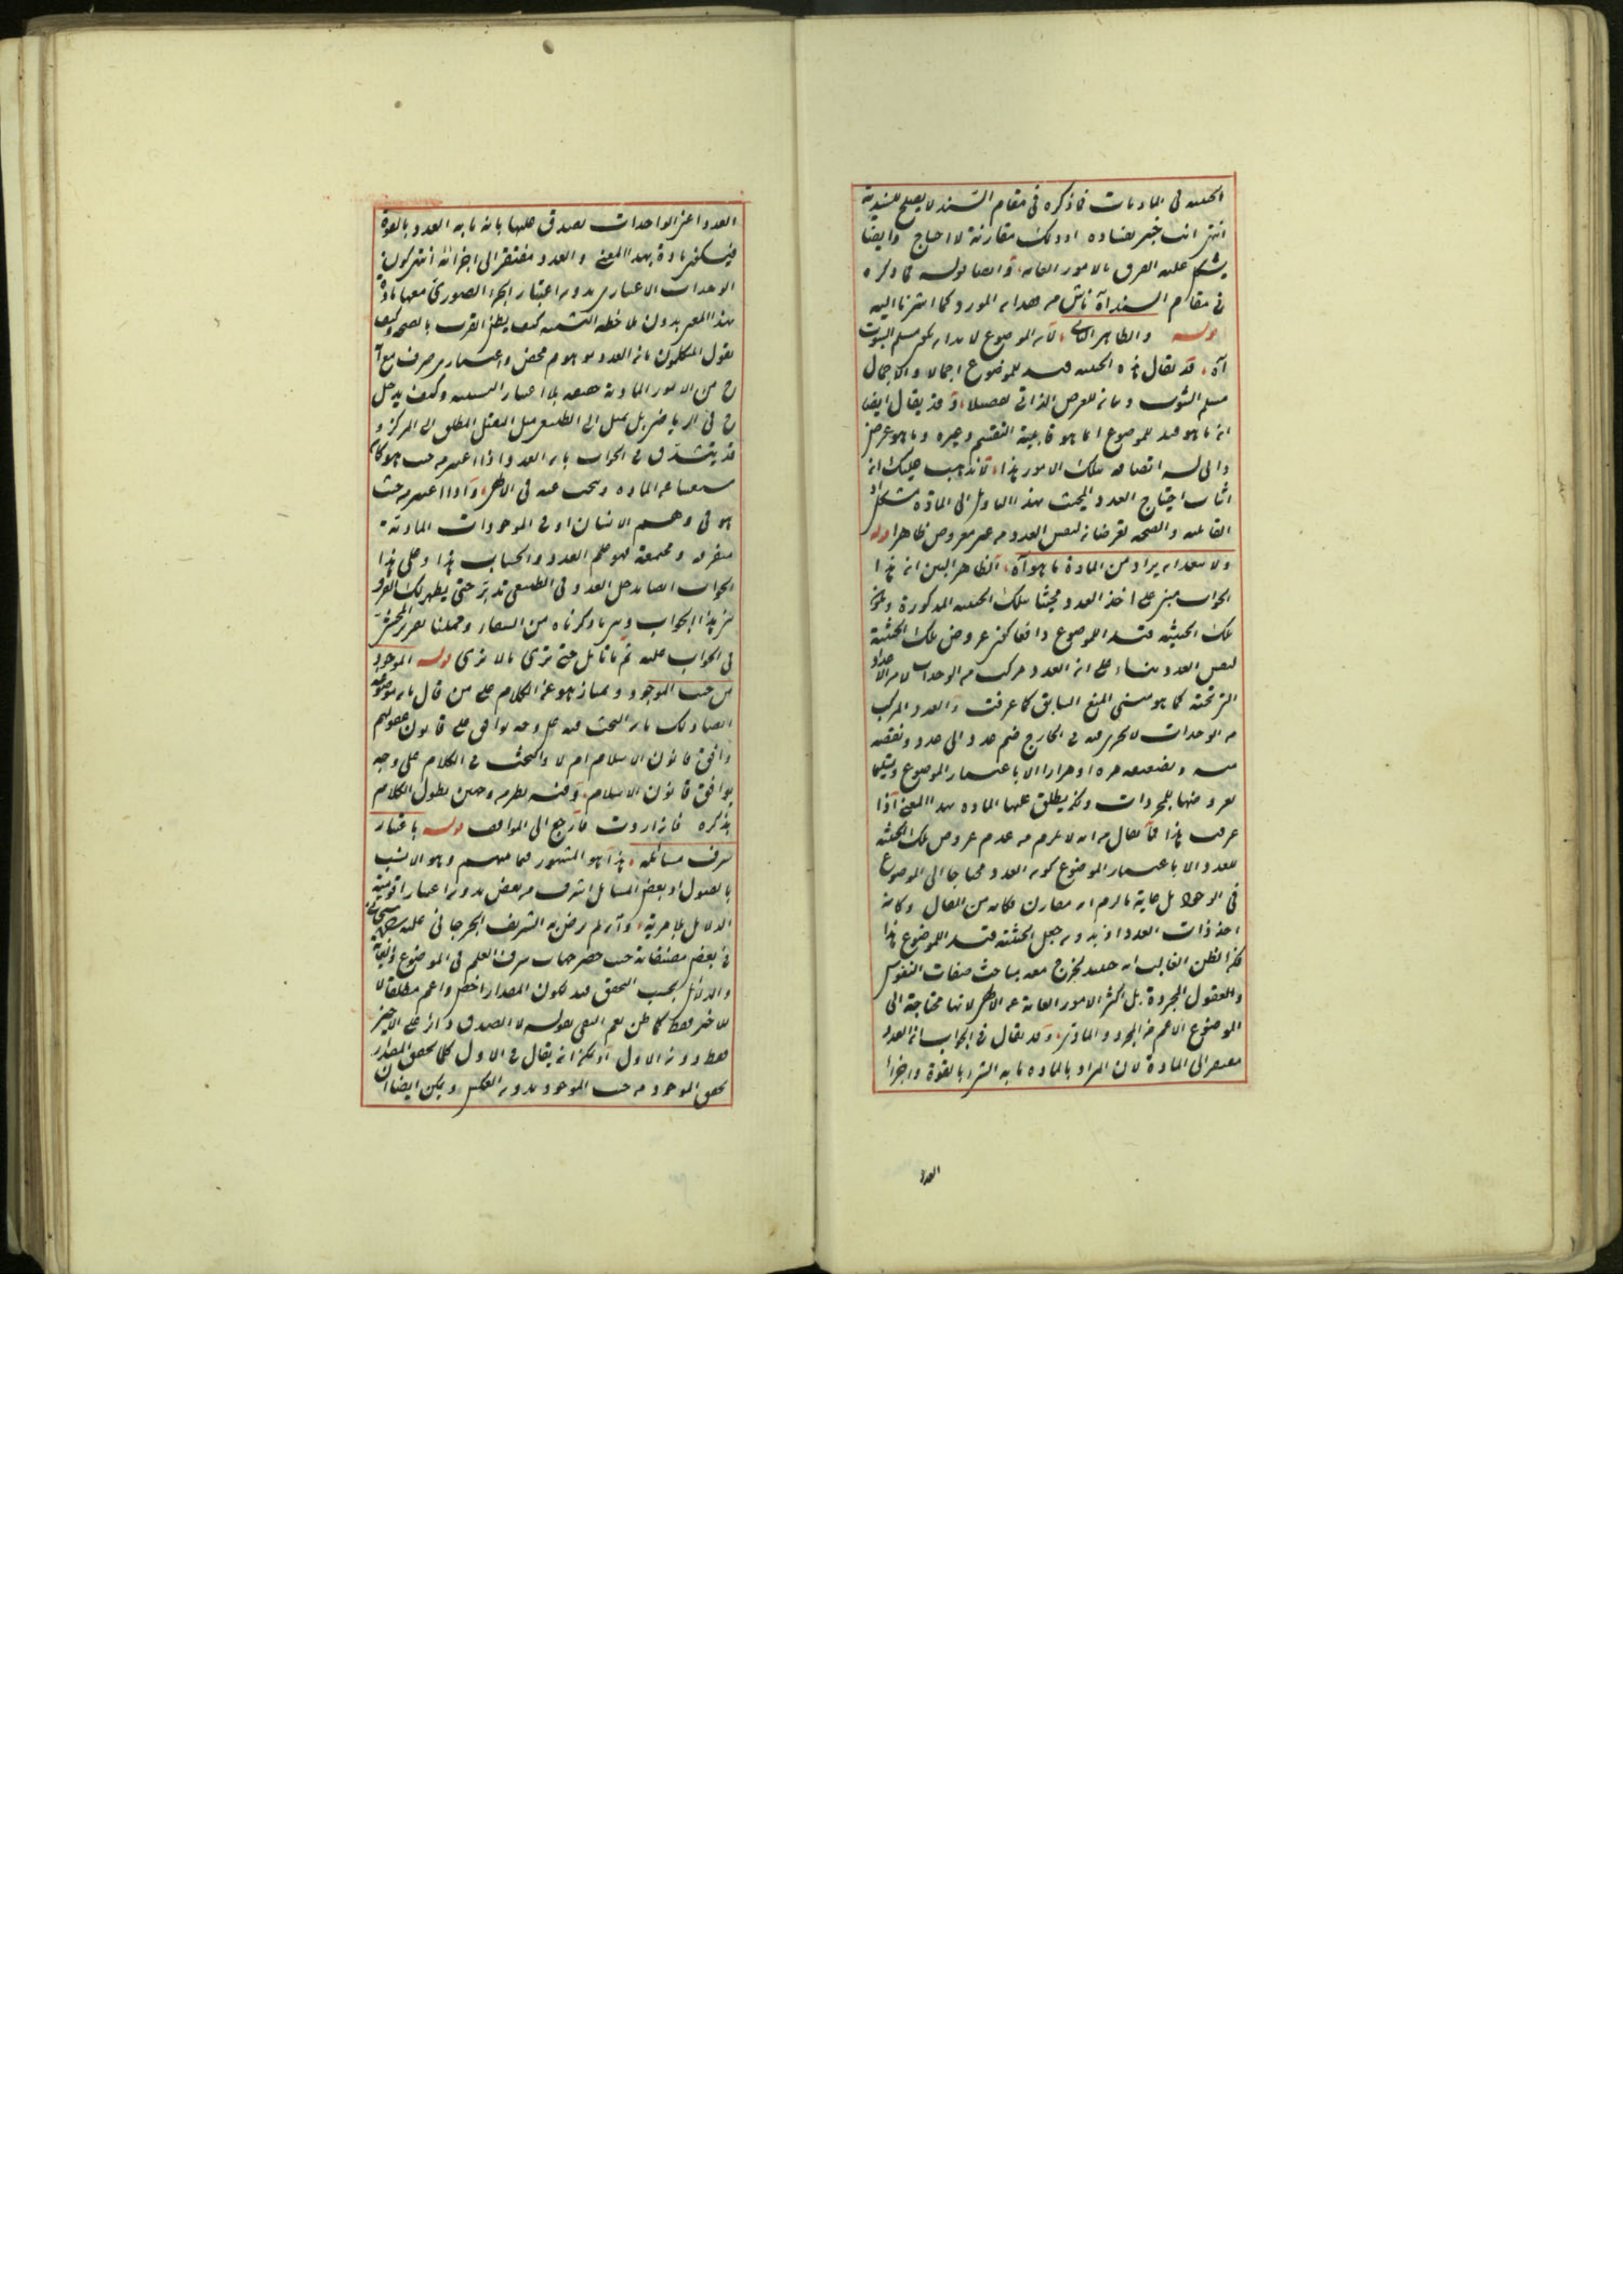 الحيثية في الماديات فما ذكره في مقام السند لا يصلح للسندية
انتهى انت خبير بفساده اذ ذلك مقارنة لا احتياج وايضا
يشكل عليه الفرق بالامور العامة وايضا قوله فما ذكره
في مقام السند آه ناش من هذا المورد كما اشرنا اليه
قوله والظاهر الثاني لان الموضوع لا بد ان يكون مسلم الثبوت
آه قد يقال هذه الحيثية قيد للموضوع اجمالا والاجمال
مسلم الثبوت وبيانه للعرض الذاتي تفصيلا وقد يقال ايضا
ان ما هو قيد للموضوع انما هو قابلية التقسيم وغيره وما هو عرض
ذاتي له اتصافه بتلك الامور هذا فلا يذهب عليك ان
اثبات احتياج العدد المبحث بهذا التأويل الى المادة مشكل اذ
القابلية والصحة تعرضان لنفس العدد من غير معروض ظاهرا قوله
ولا يبعد ان يراد من المادة ما هو آه الظاهر البين ان هذا
الجواب مبني على اخذ العدد محيثا بتلك الحيثية المذكورة
تلك الحيثية قيد الموضوع دافعا لكن عروض تلك الحيثية
لنفس العدد بناء على ان العدد مركب من الوحدات لا من الاعداد
التي تحته كما هو مبنى المنع السابق كما عرفت والعدد المركب
من الوحدات لا يجري فيه في الخارج ضم عدد الى عدد ونقصه
منه وتضعيفه مرة او مرارا الا باعتبار الموضوع
عروضها للمجردات ولكن يطلق عليها المادة بهذا المعنى اذا
عرفت هذا فما يقال من انه لا يلزم من عدم عروض تلك الحيثية
للعدد الا باعتبار الموضوع كون العدد محتاجا الى الموضوع
في الوجود بل غاية ما لزم ان مقارن فكانه من القال وكانه
اخذ ذات العدد اذ بدون جعل الحيثية قيد الموضوع هذا
لكن الظن الغالب ان حينئذ يخرج معه مباحث صفات النفوس
والعقول المجردة بل اكثر الامور العامة عن الالهي لانها محتاجة الى
الموضوع الاعم من المجرد والمادي وقد يقال في الجواب ان العدد
مفتقر الى المادة لان المراد بالمادة ما به الشئ بالقوة واجزاء
العدد
العدد اعني الواحدات يصدق عليها بانه ما به العدد بالقوة
فيكون مادة بهذا المعنى والعدد مفتقر الى اجزائه انتهى كون
الوحدات الاعتباري بدون اعتبار الجزء الصوري معها مادة
بهذا المعنى بدون ملاحظة التشبيه كيف يظن القرب بالصحة وكيف
يقول المتكلمون بان العدد موهوم محض واعتباري صرف مع
ح من الامور المادية حقيقة بلا اعتبار التشبيه وكيف يدخل
ح في الرياضي بل يميل الى الطبيعي ميل الثقيل المطلق الى المركز و
قد يتشدق في الجواب بان العدد اذا اعتبر من حيث هو كان
مستغنيا عن المادة ويبحث عنه في الالهي واذا اعتبر من حيث
هو في وهم الانسان او في الموجودات المادية
متفرقة ومجتمعة فهو علم العدد والحساب هذا وعلى هذا
الجواب ايضا يدخل العدد في الطبيعي تدبر حتى يظهر لك الفرق
بين هذا الجواب وبين ما ذكرناه من الشفاء وحملنا تقرير المحشي
في الجواب عليه ثم تأمل حتى ترى ما لا ترى قوله الموجود
من حيث الموجود ويمتاز هو عن الكلام على من قال بان موضوعه
ايضا ذلك بان البحث فيه على وجه يوافق على قانون عقولهم
وافق قانون الاسلام ام لا والبحث في الكلام على وجه
يوافق قانون الاسلام وفيه نظر من وجهين يطول الكلام
بذكره فان اردت فارجع الى المواقف قوله باعتبار
شرف مسائله هذا هو المشهور فيما بينهم وهو الانسب
بالقبول اذ بعض المسائل اشرف من بعض بدون اعتبار اقومية
الدلائل بلا مرية وان لم يرض به الشريف الجرجاني عليه
في بعض مصنفاته حيث حصر جهات شرف العلم في الموضوع والغاية
والدلائل بحسب التحقق قيد لكون المصدر اخص واعم مطلقا لا
للاخير فقط كما ظن نعم النفي بقوله لا الصدق دائر على الاخير
فقط دون الاول اذ يمكن ان يقال في الاول كلما تحقق المصدر
تحقق الموجود من حيث الموجود بدون العكس ويمكن ايضا ان